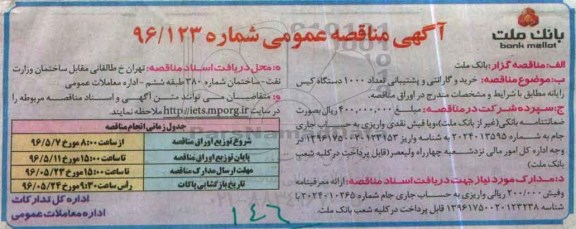 بانک ملت
bank mellat
آگهی مناقصه عمومی شماره ۹۶/۱۲۳
الف: مناقصه گزار: بانک ملت
ب: موضوع مناقصه: خرید و گارانتی و پشتیبانی تعداد ۱۰۰۰ دستگاه کیس
رایانه مطابق با شرایط و مشخصات مندرج در اوراق مناقصه.
ج: سپرده شرکت در مناقصه: ۴۰۰.۰۰۰.۰۰۰ ریال بصورت
ضمانتنامه بانکی (غیر از بانک ملت) و یا فیش نقدی واریزی به حساب جاری
جام به شماره ۲۰۲۴۰۱۳۵۹۵ با شناسه
وجه اداره کل امور مالی نزد شعبه چهارراه ولیعصر (قابل پرداخت در کلیه شعب
بانک ملت)
د: مدارک مورد نیاز جهت دریافت اسناد مناقصه: ارائه معرفینامه
وفیش ۲۰۰/۰۰۰ ریالی واریزی به حساب جاری جام شماره ۲۰۲۴۰۱۰۲۶۵ با
شناسه ۱۳۹۶۱۷۵۰۰۲۰۱۲۳۲۳۸ قابل پرداخت در کلیه شعب بانک ملت.
ه: محل دریافت اسناد مناقصه: تهران خ طالقانی مقابل ساختمان وزارت
نفت - ساختمان شماره ۳۸۰ طبقه ششم - اداره معاملات عمومی
و: متقاضیان می توانند متن آگهی و اسناد مناقصه مربوطه را
در سایت http://iets.mporg.ir ملاحظه نمایند.
جدول زمانی انجام مناقصه
شروع توزیع اوراق مناقصه از ساعت ۸:۰۰ مورخ ۹۶/۵/۷
پایان توزیع اوراق مناقصه تا ساعت ۱۵:۰۰ مورخ ۹۶/۵/۱۱
مهلت ارسال مدارک مناقصه تا ساعت ۱۵:۰۰ مورخ ۹۶/۰۵/۲۳
تاریخ بازگشایی پاکات راس ساعت ۹:۳۰ مورخ ۹۶/۰۵/۲۴
اداره کل تدارکات
اداره معاملات عمومی
۱۴۶